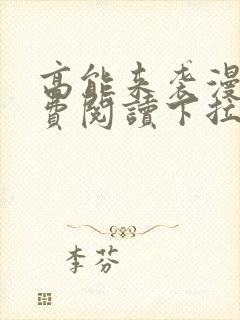 高能来袭漫
费阅读下拉
李芬